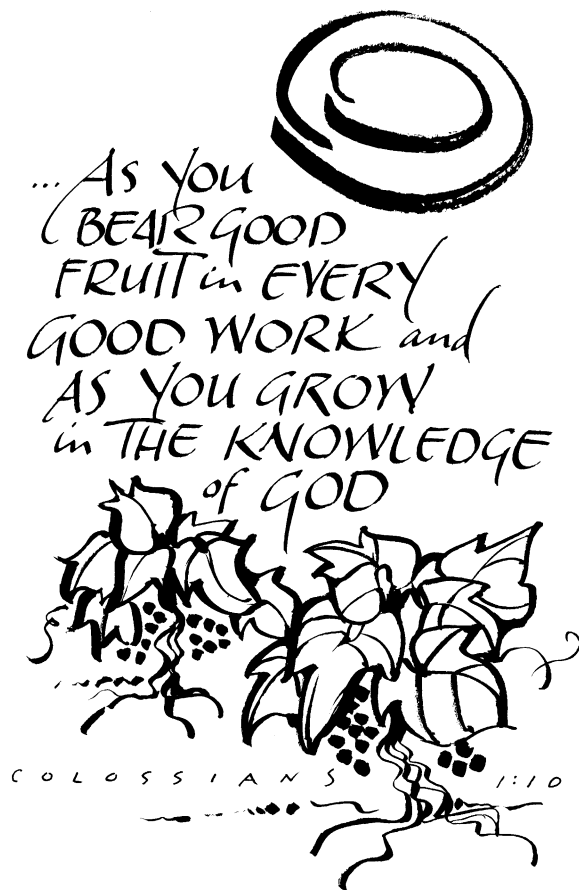 ...As you
BEAR GOOD
FRUIT in EVERY
GOOD WORK and
AS YOU GROW
in THE KNOWLEDGE
of GOD
COLOSSIANS 1:10